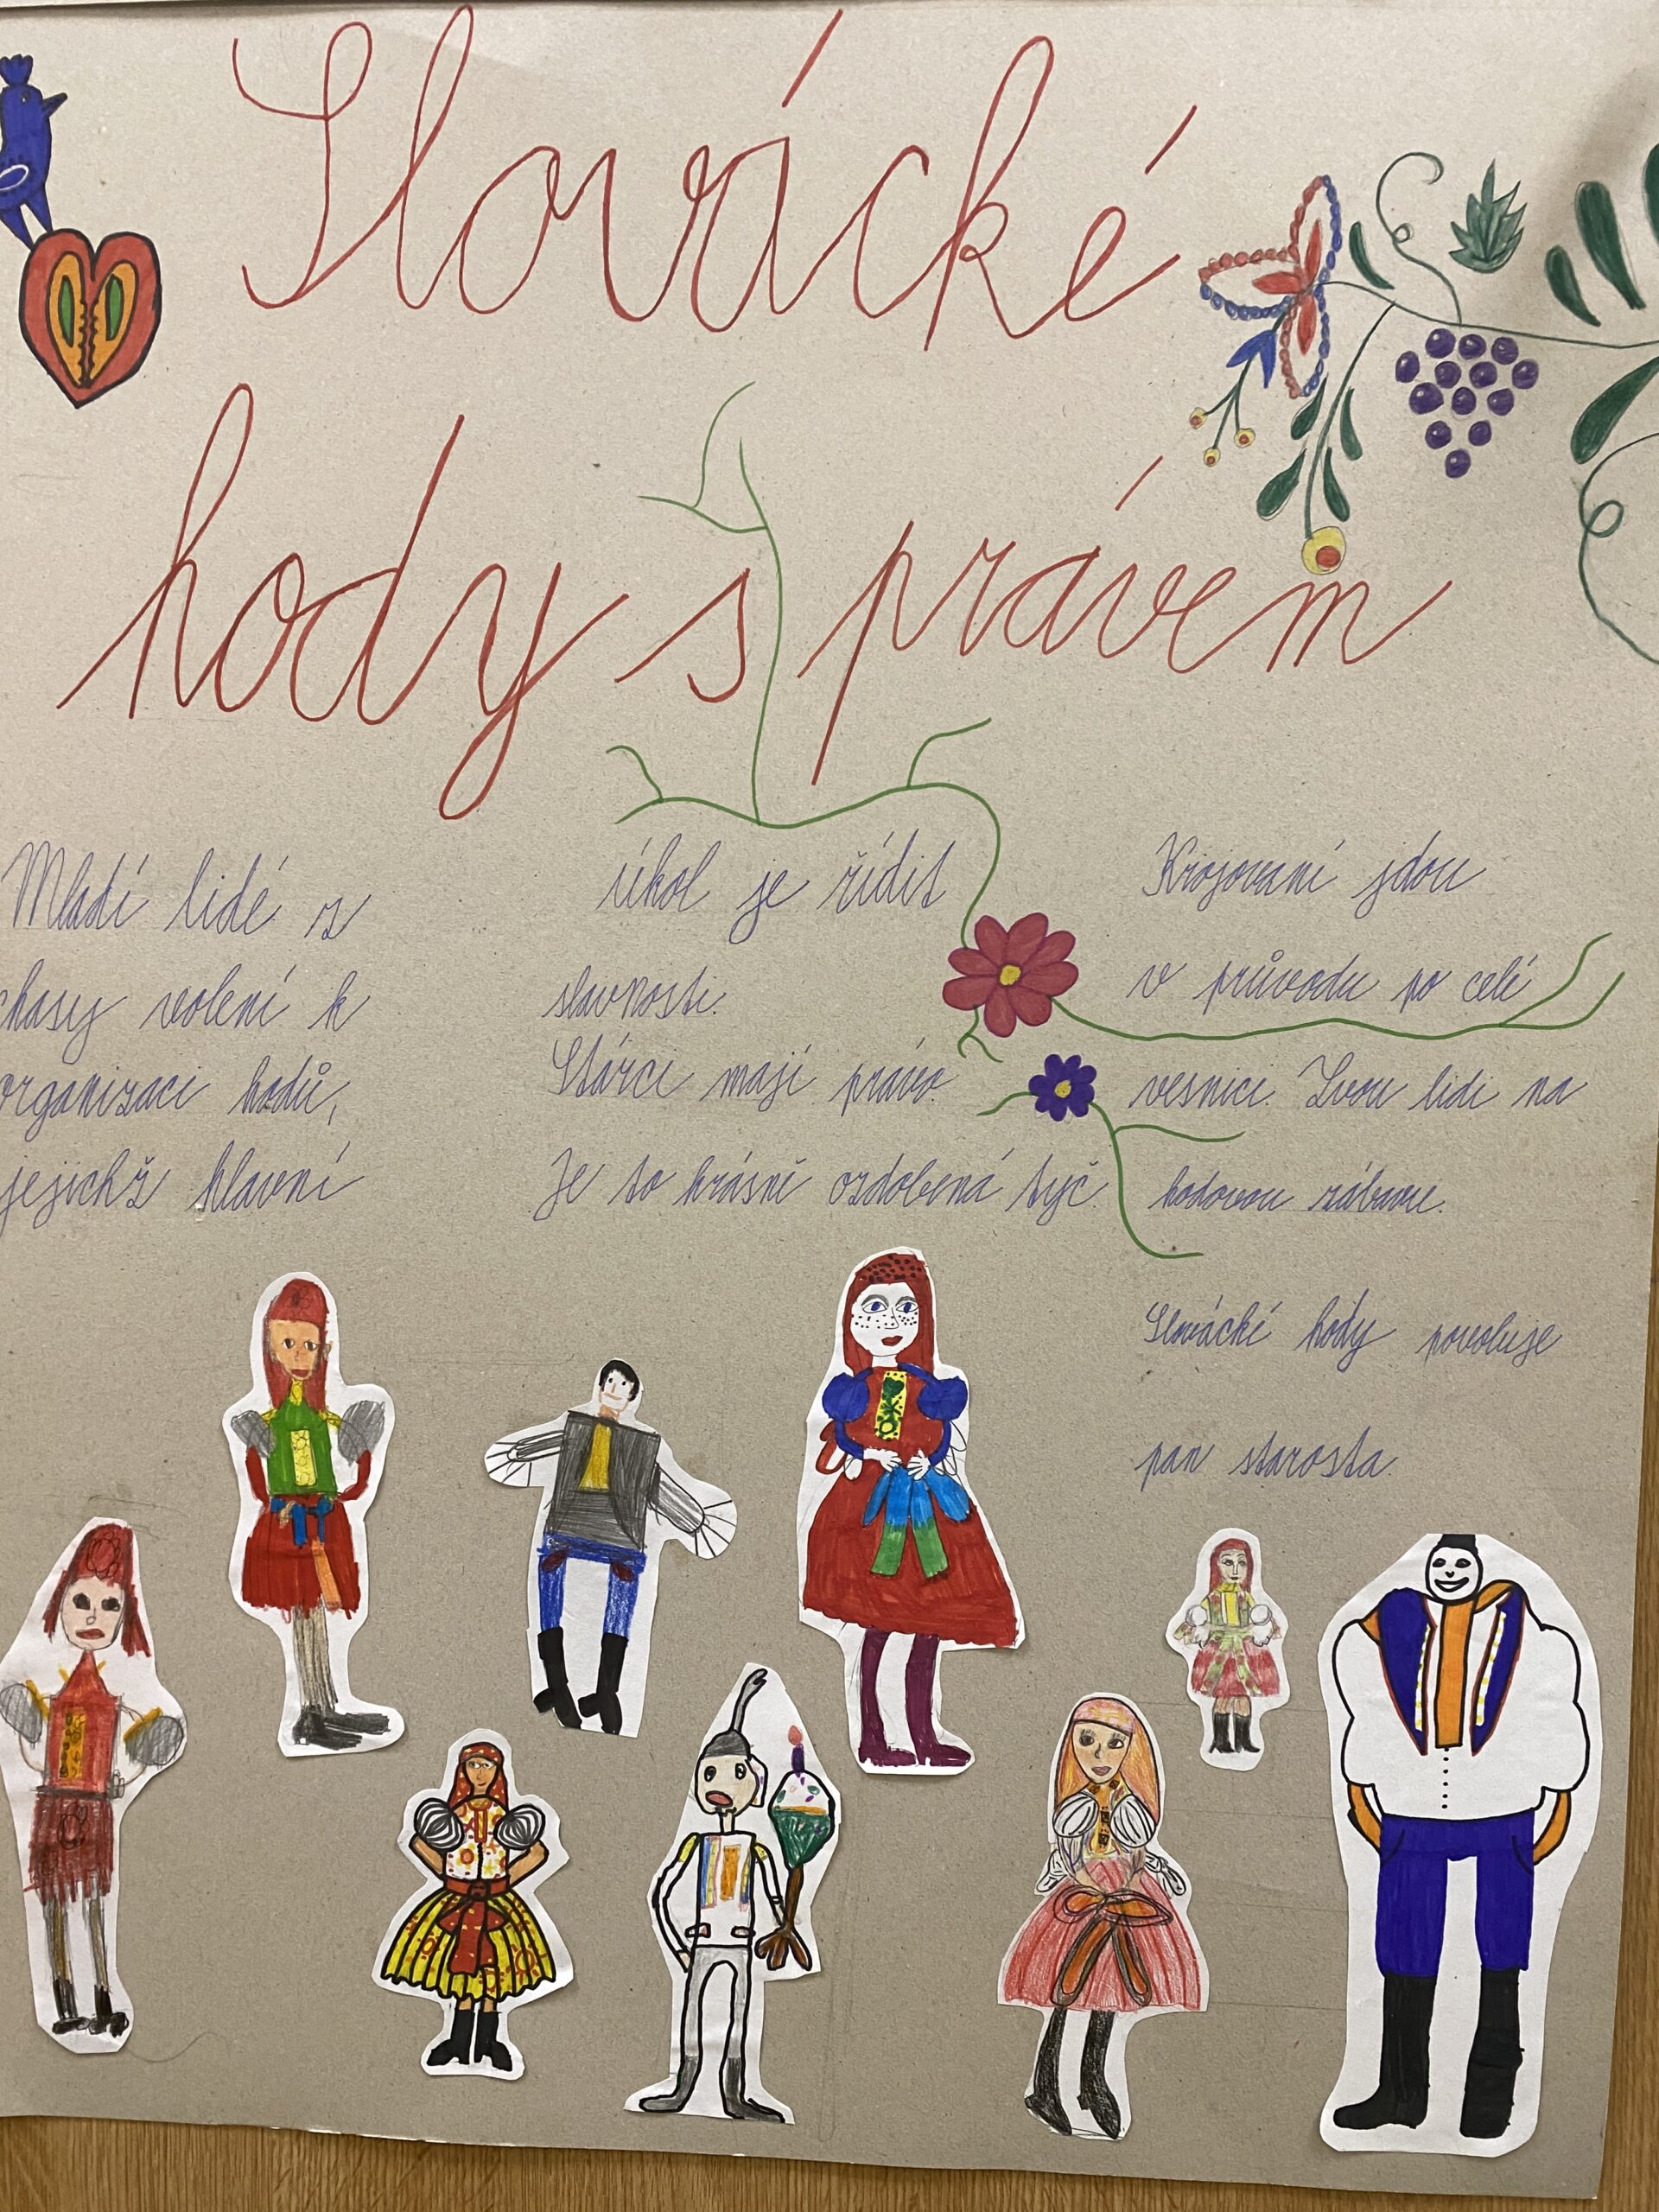 Slovácké
hody s právem
Mladí lidé z
chasy volení k
organizaci hodů,
jejichž hlavní
úkol je řídit
slavnosti.
Stárci mají právo.
Je to krásně ozdobená tyč.
Krojovaní jdou
v průvodu po celé
vesnici. Zvou lidi na
hodovou zábavu.
Slovácké hody povoluje
pan starosta.